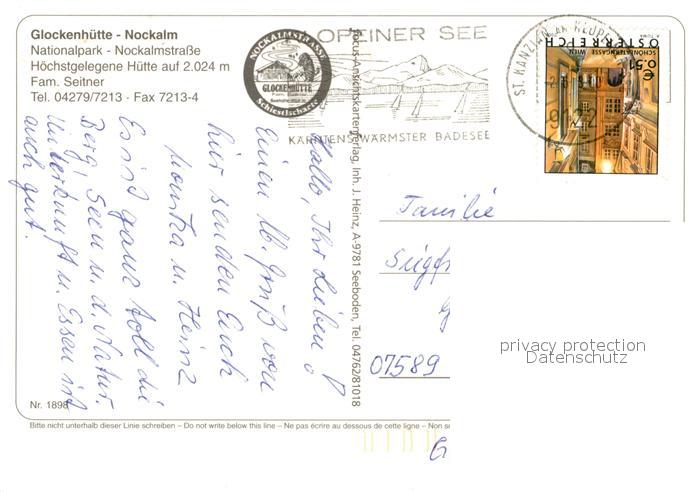 Glockenhütte - Nockalm
Nationalpark - Nockalmstraße
Höchstgelegene Hütte auf 2.024 m
Fam. Seitner
Tel. 04279/7213 · Fax 7213-4
NOCKALMSTRASSE
GLOCKENHÜTTE
Schiestlscharte
OPEINER SEE
KÄRNTENS WÄRMSTER BADESEE
ST. KANZIAN AM KLOPEINER
9122
ÖSTERREICH
€ 0.51
SCHÖNLATERNGASSE
WIEN
Hallo, Ihr Lieben
Einen lb. Gruß von
hier senden Euch
Monika u. Heinz
Es ist ganz toll die
Berg, Seen u. d. Natur.
Unterkunft u. Essen ist
auch gut.
Focus-Ansichtskartenverlag, Inh. J. Heinz, A-9781 Seeboden, Tel. 04762/81018
Familie
Siegf
07589
G
privacy protection
Datenschutz
Nr. 1898
Bitte nicht unterhalb dieser Linie schreiben – Do not write below this line – Ne pas écrire au dessous de cette ligne – Non